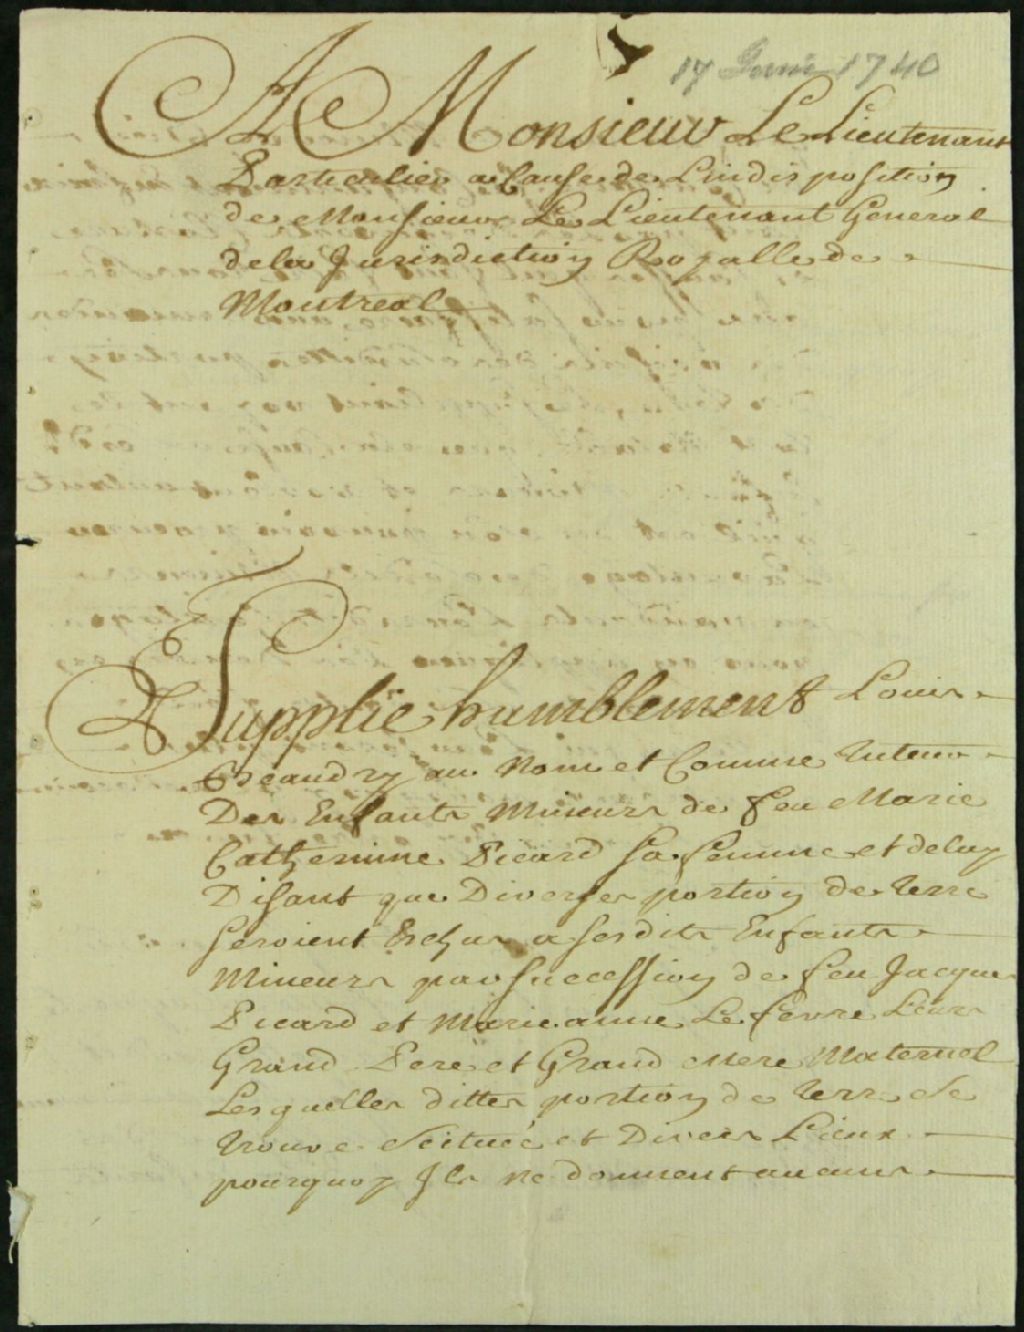 17 Juin 1740
A Monsieur Le Lieutenant
Particulier a Cause de Lindisposition
de Monsieur Le Lieutenant General
dela Jurisdiction Royalle de
Montreal
Supplie humblement Louis
au Nom et Comme tuteur
Des Enfants Mineurs de feu Marie
Catherinne Picard sa femme et deluy
Disant que Diverses portion de terre
seroient Echus a ses dits Enfants
Mineurs par succession de feu Jacque
Picard et Marie anne Le fevre Leurs
Grand Pere et Grand Mere Maternel
Lesquelles dittes portion de terre se
trouve scituée et Divers Lieux
pourquoy Ils ne donnent aucuns